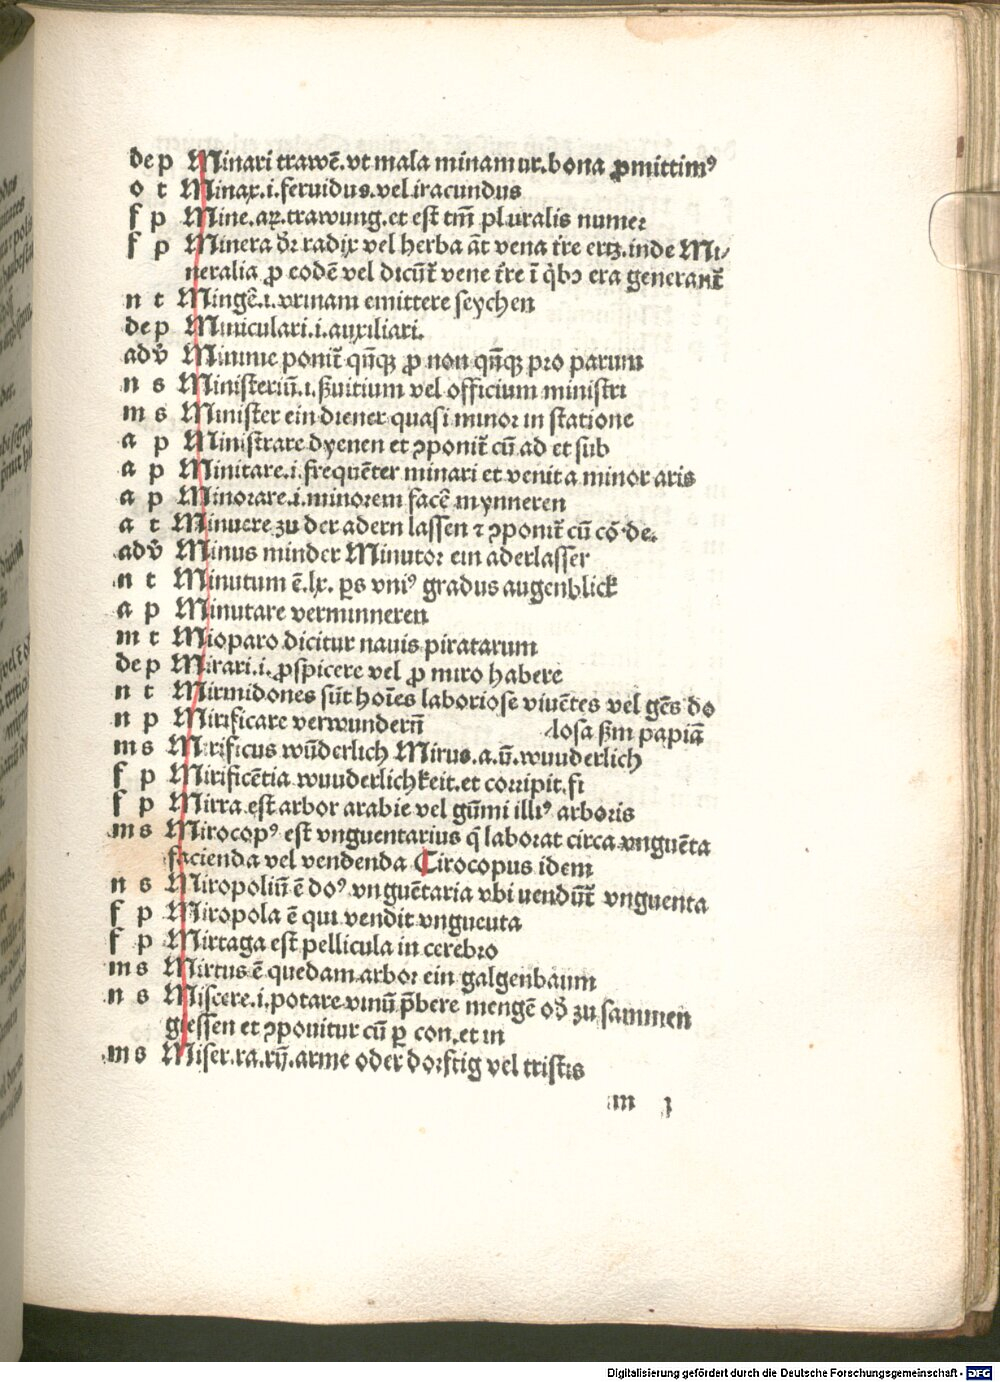 de p Minari trawē.vt mala minamur.bona ꝓmittimꝰ
o t Minax.i.feruidus.vel iracundus
f p Mine.aꝝ.trawung.et est tm̄ pluralis numeꝛ
f p Minera dr̄ radix vel herba āt vena tr̄e ertz.inde Mi⸗
neralia ꝓ eodē vel dicūt̄ vene tr̄e ī qͥbꝫ era generant̄
n t Mingē.i.vrinam emittere seychen
de p Miniculari.i.auxiliari.
adv̄ Minime ponit̄ qn̄qꝫ ꝓ non qn̄qꝫ pro parum
n s Ministeriū.i.ßuitium vel officium ministri
m s Minister ein diener quasi minoꝛ in statione
a p Ministrare dyenen et ꝯponit̄ cū ad et sub
a p Minitare.i.frequēter minari et venit a minor aris
a p Minorare.i.minorem facē mynneren
a t Minuere zu der adern lassen ⁊ ꝯponit̄ cū cō.de.
adv̄ Minus minder Minutoꝛ ein aderlasser
n t Minutum ē.lx. ꝑs vniꝰ gradus augenblick
a p Minutare verminneren
m t Mioparo dicitur nauis piratarum
de p Mirari.i.ꝓspicere vel ꝓ miro habere
n t Mirmidones sūt hoīes laboriose viuētes vel gēs do
n p Mirificare verwundern̄ losa ßm papiā
m s Mirificus wūderlich Mirus.a.ū.wuuderlich
f p Mirificētia wuuderlichkeit.et corripit.fi
f p Mirra est arbor arabie vel gūmi illiꝰ arboris
m s Mirocopꝰ est vnguentarius q̄ laborat circa vnguēta
facienda vel vendenda Cirocopus idem
n s Miropoliū ē doꝰ vnguētaria vbi uendūt̄ vnguenta
f p Miropola ē qui vendit vngueuta
f p Mirtaga est pellicula in cerebro
m s Mirtus ē quedam arboꝛ ein galgenbaum
n s Miscere.i.potare vinū p̄bere mengē od̄ zu sammen
giessen et ꝯponitur cū ꝑ con.et in
m s Miser.ra.rū.arme oder dorftig vel tristis
m 3
Digitalisierung gefördert durch die Deutsche Forschungsgemeinschaft - DFG